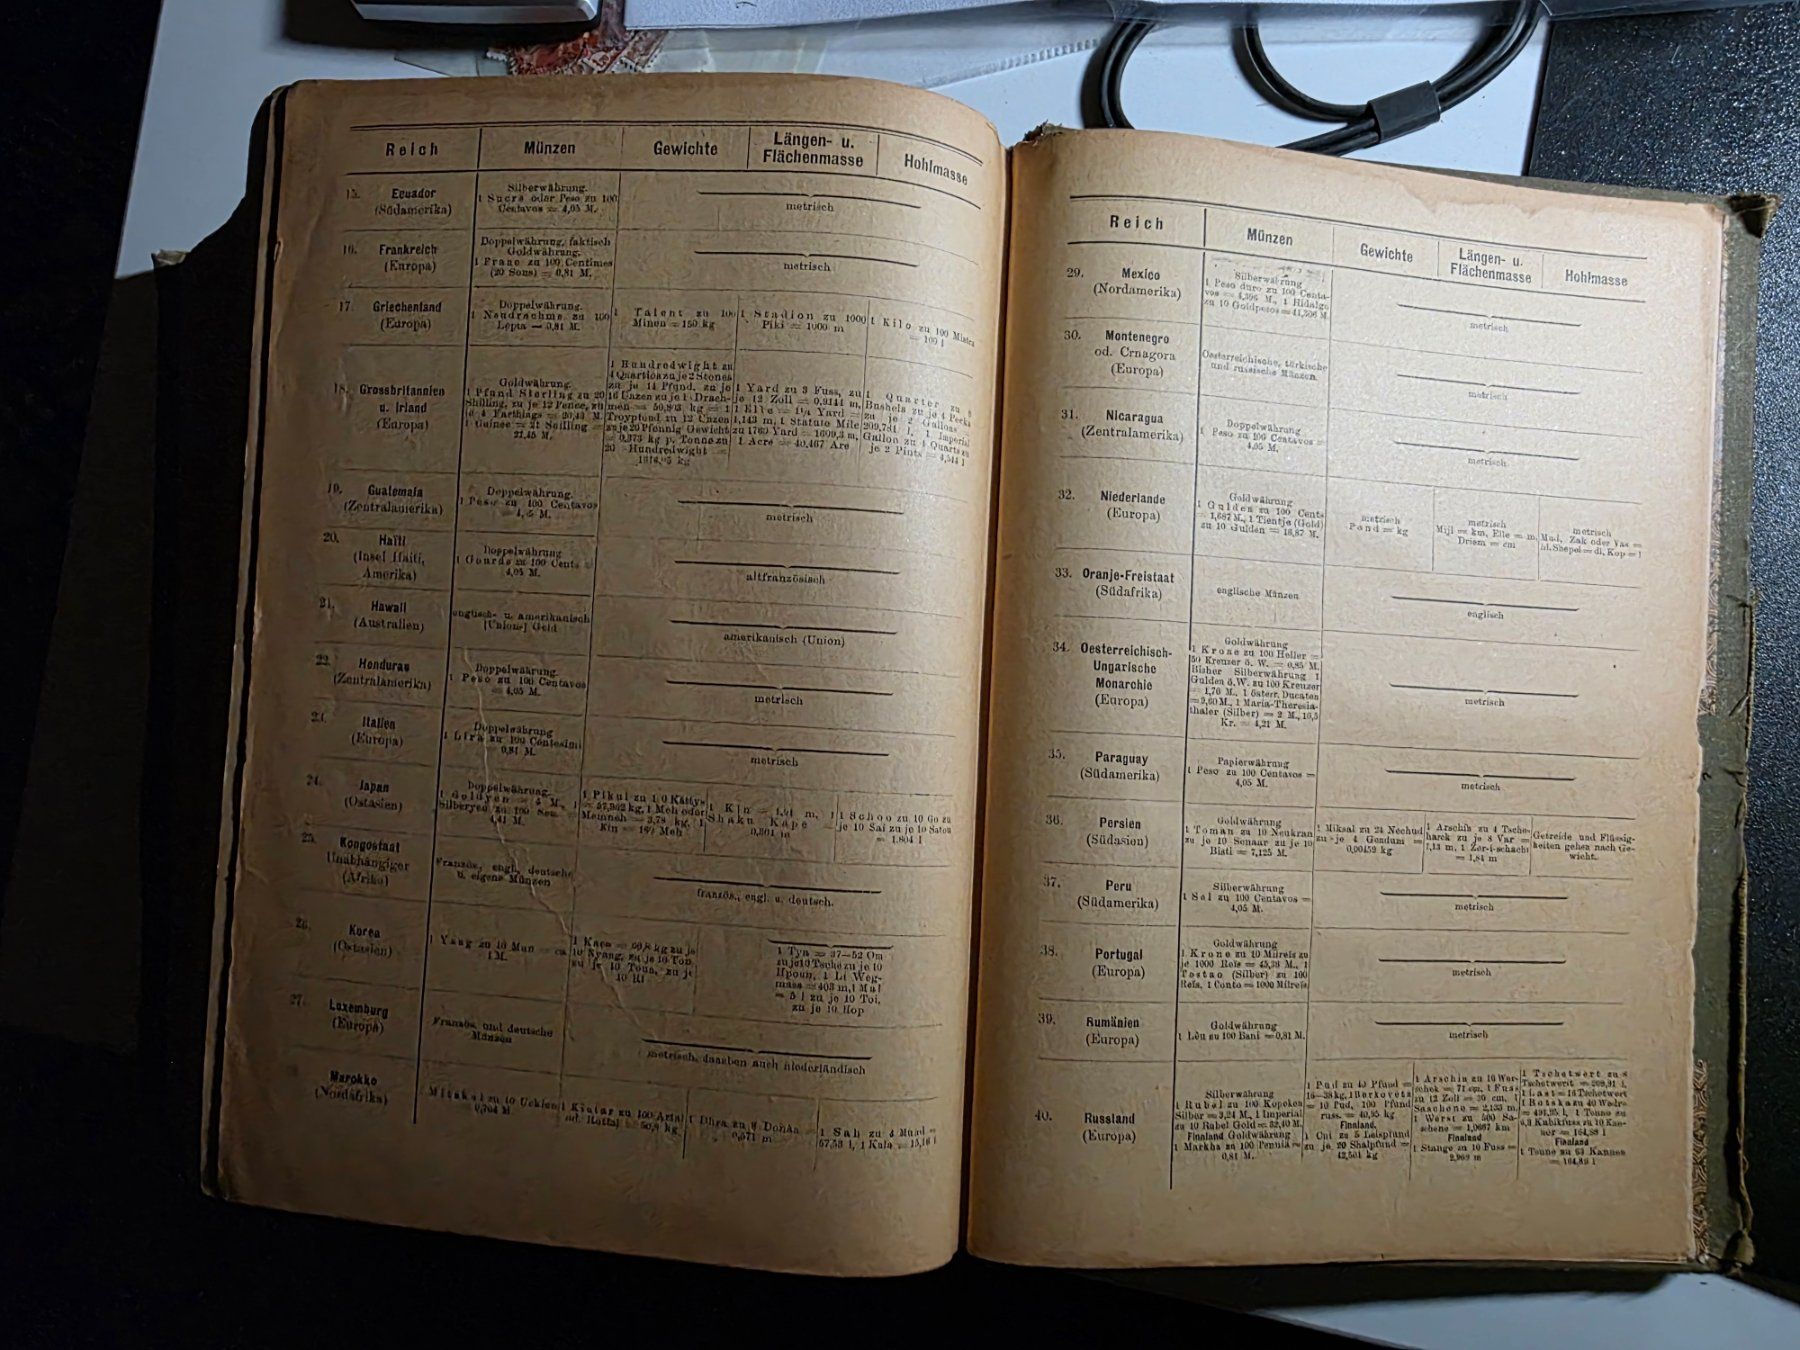 Reich Münzen Gewichte Längen- u. Flächenmasse Hohlmasse
15. Ecuador
(Südamerika)
Silberwährung.
1 Sucre oder Peso zu 100
Centavos = 4,05 M.
metrisch
16. Frankreich
(Europa)
Doppelwährung, faktisch
Goldwährung.
1 Franc zu 100 Centimes
(20 Sous) = 0,81 M.
metrisch
17. Griechenland
(Europa)
Doppelwährung.
1 Neudrachme zu 100
Lepta = 0,81 M.
1 Talent zu 100
Minen = 150 kg
1 Stadion zu 1000
Piki = 1000 m
1 Kilo zu 100 Mistra
= 100 l
18. Grossbritannien
u. Irland
(Europa)
Goldwährung.
1 Pfund Sterling zu 20
Shilling, zu je 12 Pence, zu
je 4 Farthings = 20,43 M.
1 Guinee = 21 Shilling =
21,45 M.
1 Hundredwight zu
4 Quartiers zu je 2 Stones
zu je 14 Pfund, zu je
16 Unzen zu je 1 Drach-
men = 50,803 kg = 1
Troypfund zu 12 Unzen
zu je 20 Pfennig Gewicht
= 0,373 kg p. Tonne zu
20 Hundredwight =
1016,05 kg
1 Yard zu 3 Fuss, zu
je 12 Zoll = 0,9144 m,
1 Elle = 1¼ Yard =
1,143 m, 1 Statute Mile
zu 1760 Yard = 1609,3 m,
1 Acre = 40,467 Are
1 Quarter zu 8
Bushels zu je 4 Pecks
zu je 2 Gallons
209,781 l, 1 Imperial
Gallon zu 4 Quarts zu
je 2 Pints = 4,544 l
19. Guatemala
(Zentralamerika)
Doppelwährung.
1 Peso zu 100 Centavos
M.
metrisch
20. Haïti
(Insel Haïti,
Amerika)
Doppelwährung
1 Gourde zu 100 Cents =
4,05 M.
altfranzösisch
21. Hawaii
(Australien)
englisch- u. amerikanisch
[Unions-] Geld
amerikanisch (Union)
22. Honduras
(Zentralamerika)
Doppelwährung.
1 Peso zu 100 Centavos
= 4,05 M.
metrisch
23. Italien
(Europa)
Doppelwährung
1 Lira zu 100 Centesimi
0,81 M.
metrisch
24. Japan
(Ostasien)
Doppelwährung.
1 Goldyen = 4 M., 1
Silberyen zu 100 Sen =
4,41 M.
1 Pikul zu 1 0 Kättys
= 57,962 kg, 1 Meh oder
Memneh = 3,78 kg, 1
Kin = 16⅔ Meh
1 Kin = 1,91 m, 1
Shaku Kape =
0,301 m
1 Schoo zu 10 Go zu
je 10 Sai zu je 10 Satou
= 1,804 l
25. Kongostaat
Unabhängiger
(Afrika)
Französ., engl., deutsche
u. eigene Münzen
französ., engl. u. deutsch.
26. Korea
(Ostasien)
1 Yang zu 10 Mun = ca
1 M.
1 Kaen = 60,8 kg zu je
10 Nyang, zu je 10 Ton,
zu je 10 Toun, zu je
10 Ri
1 Tyn = 37—52 Om
zu je 10 Tsche zu je 10
Hpoun, 1 Li Weg-
mass = 403 m, 1 Mal
= 5 l zu je 10 Toi,
zu je 10 Hop
27. Luxemburg
(Europa)
Französ. und deutsche
Münzen
metrisch, daneben auch niederländisch
Marokko
(Nordafrika)
Mitskal zu 10 Uckien
0,704 M.
1 Kintar zu 100 Artal
od. Rottal = 50,9 kg
1 Dhra zu 8 Domin =
0,571 m
1 Sah zu 4 Mudd =
57,53 l, 1 Kula = 15,16 l
Reich Münzen Gewichte Längen- u. Flächenmasse Hohlmasse
29. Mexico
(Nordamerika)
Silberwährung
1 Peso duro zu 100 Centa-
vos = 4,396 M., 1 Hidalgo
zu 10 Goldpesos = 41,306 M.
metrisch
30. Montenegro
od. Crnagora
(Europa)
Oesterreichische, türkische
und russische Münzen.
metrisch
31. Nicaragua
(Zentralamerika)
Doppelwährung
1 Peso zu 100 Centavos =
4,05 M.
metrisch
32. Niederlande
(Europa)
Goldwährung
1 Gulden zu 100 Cents
= 1,687 M., 1 Tientje (Gold)
zu 10 Gulden = 16,87 M.
metrisch
Pond = kg
metrisch
Mijl = km, Elle = m,
Driem = cm
metrisch
Mud, Zak oder Vas =
hl. Shepel = dl, Kop = l
33. Oranje-Freistaat
(Südafrika)
englische Münzen
englisch
34. Oesterreichisch-
Ungarische
Monarchie
(Europa)
Goldwährung
1 Krone zu 100 Heller =
50 Kreuzer ö. W. = 0,85 M.
Bisher Silberwährung 1
Gulden ö. W. zu 100 Kreuzer
= 1,70 M., 1 österr. Ducaten
= 9,60 M., 1 Maria-Theresia-
thaler (Silber) = 2 M., 10,5
Kr. = 4,21 M.
metrisch
35. Paraguay
(Südamerika)
Papierwährung
1 Peso zu 100 Centavos =
4,05 M.
metrisch
36. Persien
(Südasien)
Goldwährung
1 Toman zu 10 Neukran
zu je 10 Senaar zu je 10
Bisti = 7,125 M.
1 Miksal zu 24 Nechud
zu je 4 Gendum =
0,00459 kg
1 Arschin zu 4 Tsche-
harck zu je 8 Var =
1,13 m, 1 Zer-i-schachi
= 1,84 m
Getreide und Flüssig-
keiten gehen nach Ge-
wicht.
37. Peru
(Südamerika)
Silberwährung
1 Sol zu 100 Centavos =
4,05 M.
metrisch
38. Portugal
(Europa)
Goldwährung
1 Krone zu 10 Milreis zu
je 1000 Reis = 45,36 M., 1
Tostao (Silber) zu 100
Reis, 1 Conto = 1000 Milreis
metrisch
39. Rumänien
(Europa)
Goldwährung
1 Lëu zu 100 Bani = 0,81 M.
metrisch
40. Russland
(Europa)
Silberwährung
1 Rubel zu 100 Kopeken
Silber = 3,24 M., 1 Imperial
zu 10 Rubel Gold = 32,40 M.
Finnland Goldwährung
1 Markka zu 100 Penniä =
0,81 M.
1 Pud zu 40 Pfund =
16—38 kg, 1 Berkovetz
= 10 Pud, 100 Pfund
russ. = 40,95 kg
Finnland.
1 Cni zu 5 Leispfund
zu je 20 Shalpfund =
42,501 kg
1 Arschin zu 16 Wer-
schek = 71 cm, 1 Fuss
zu 12 Zoll = 30 cm, 1
Saschene = 2,133 m,
1 Werst zu 500 Sa-
schene = 1,0667 km
Finnland
1 Stange zu 10 Fuss =
2,969 m
1 Tschetwert zu 8
Tschetwerit = 209,91 l,
1 Last = 16 Tschetwert
1 Botska zu 40 Wedro
= 491,95 l, 1 Tonne zu
6,3 Kubikfuss zu 10 Kan-
nor = 164,88 l
Finnland
1 Tonne zu 63 Kannen
= 164,89 l